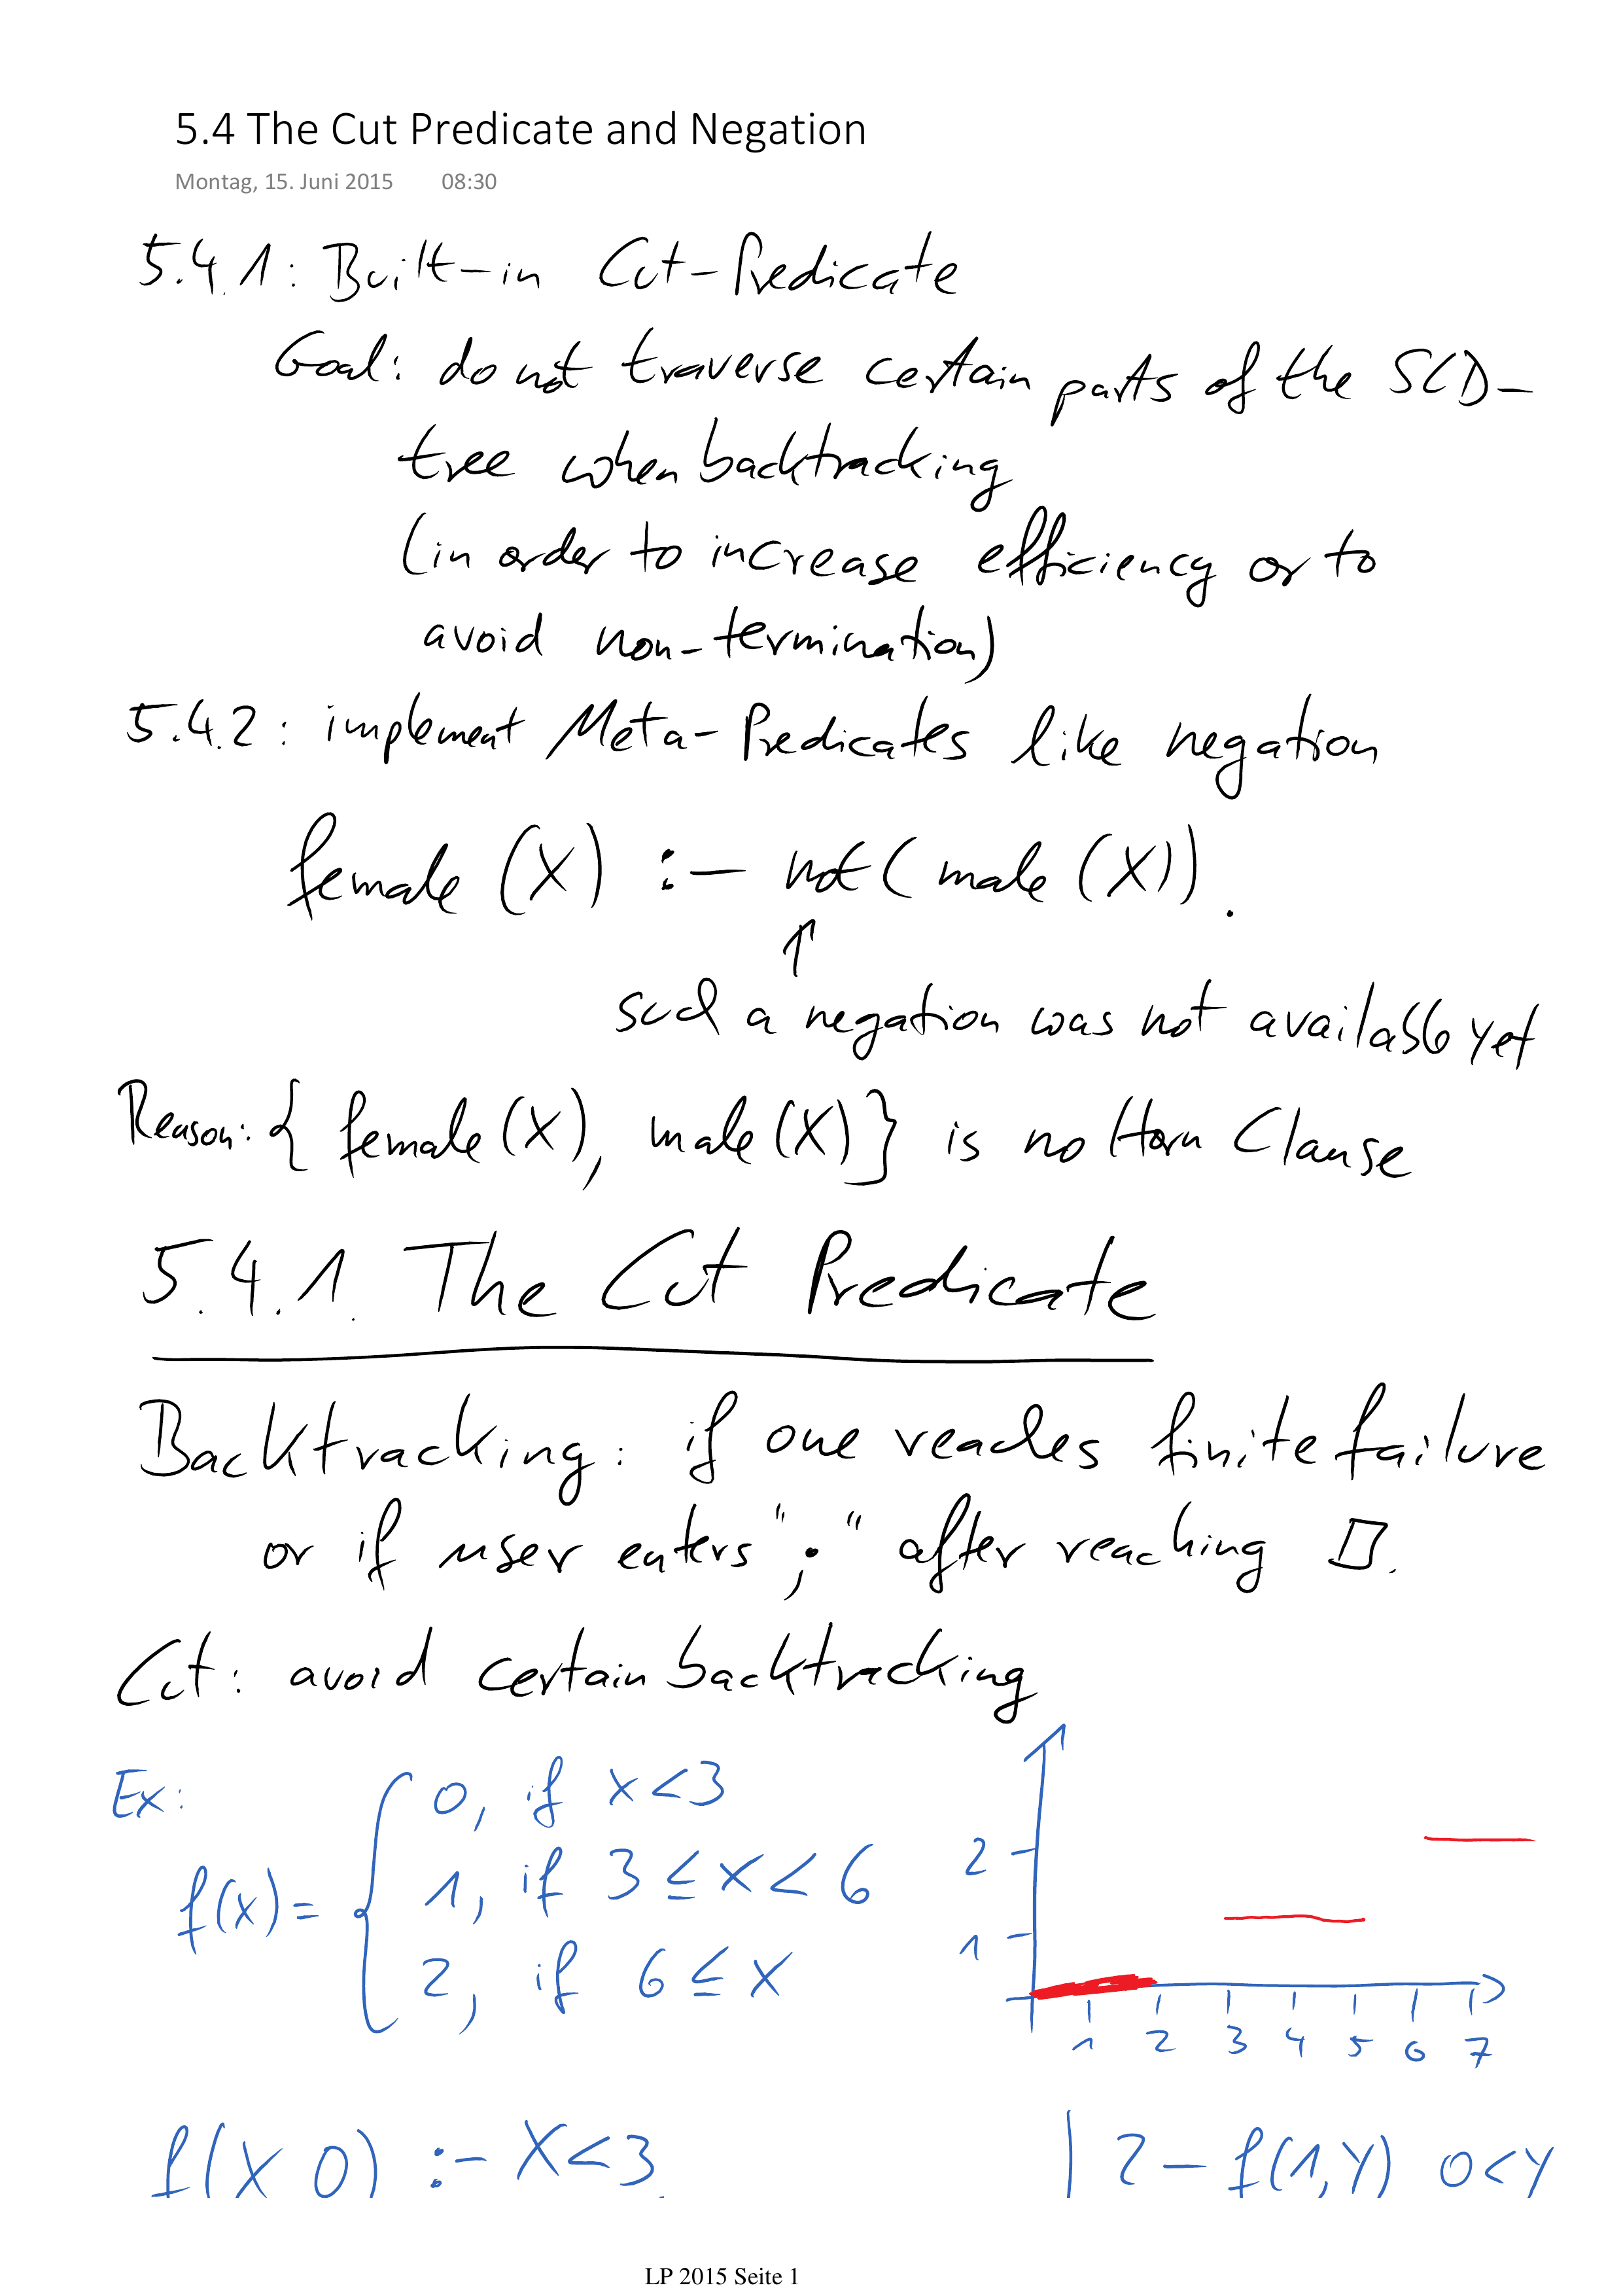 5.4 The Cut Predicate and Negation
Montag, 15. Juni 2015 08:30
5.4.1: Built-in Cut-Predicate
Goal: do not traverse certain parts of the SLD-
tree when backtracking
(in order to increase efficiency or to
avoid non-termination)
5.4.2: implement Meta-Predicates like negation
female (X) :- not( male (X)).
↑
such a negation was not available yet
Reason: { female (X), male (X)} is no Horn Clause
5.4.1. The Cut Predicate
Backtracking: if one reaches finite failure
or if user enters ";" after reaching □.
Cut: avoid certain backtracking
Ex:
f(x) = { 0, if x < 3
1, if 3 ≤ x < 6
2, if 6 ≤ x
2
1
1 2 3 4 5 6 7
f(X 0) :- X<3.
| ?- f(1,Y) 0<Y
LP 2015 Seite 1